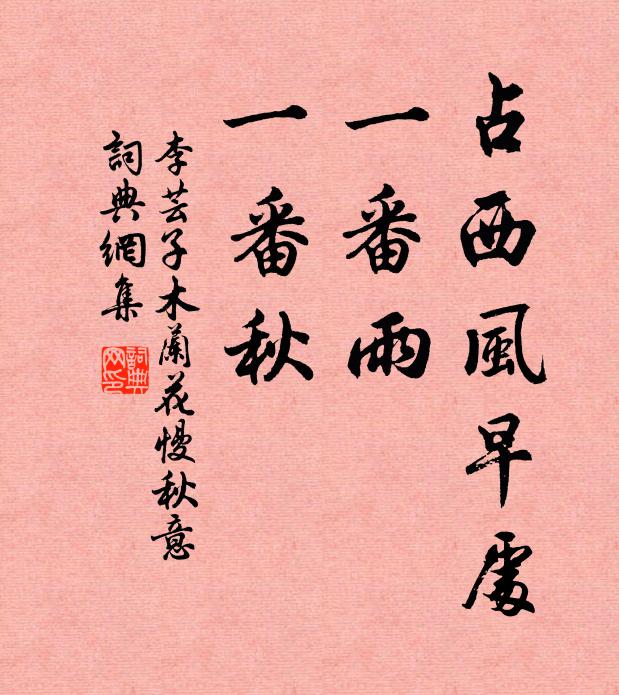 占西風早處
一番雨
一番秋
李芸子木蘭花慢秋意
詞典網集
詞典网印